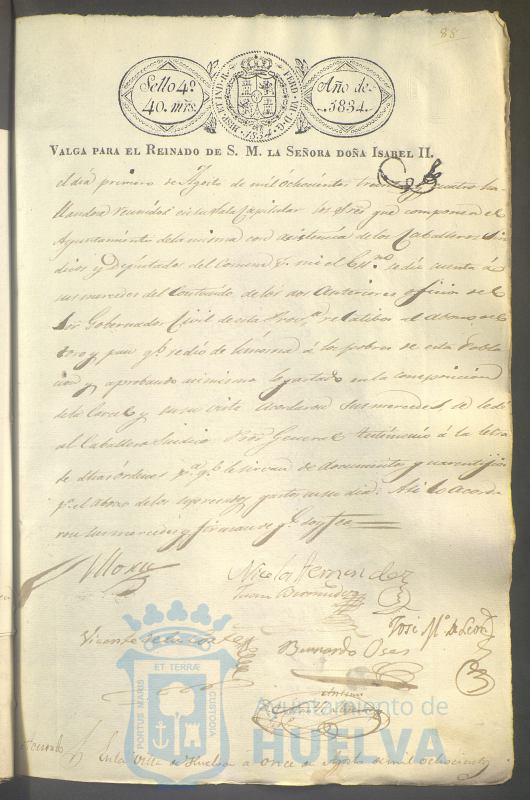 88
Sello 4º
40. mrs.
HISP. ET IND. R. FERD. VII. D. G.
Año de
1834.
VALGA PARA EL REINADO DE S. M. LA SEÑORA DOÑA ISABEL II.
el dia primero de Agosto de mil ochocientos treinta y cuatro ha
llandose reunidos en la Sala Capitular los Sres que componen el
Ayuntamiento de la misma con asistencia de los Caballeros Sin
dicos y Diputados del Comun p. mi el Essno se dió cuenta á
sus mercedes del Contenido de los dos Anteriores oficios del
Sor Gobernador Civil de esta Prova relatibos al Abono del
y pan qe se dió de limosna á los pobres de esta Pobla
cion y aprobando asimismo lo gastado en la composicion
de la Carcel y en su vista Acordaron sus mercedes, se le dé
al Caballero Sindico Pror General testimonio á la letra
de dhas órdenes pa qe le sirvan de documento y
pa el abono de los espresados gastos en su dia. Asi lo acorda
ron sus mercedes y firmaron de qe doy fee
Nicolas Hernandez
Juan Bermudez
José Mª de Leon
Vicente de la Corte
Bernardo Osas
Antonio
Acuerdo
En la Villa de Huelva a once de Agosto de mil ochocientos
PORTUS MARIS
ET TERRÆ
CUSTODIA
Ayuntamiento de
HUELVA